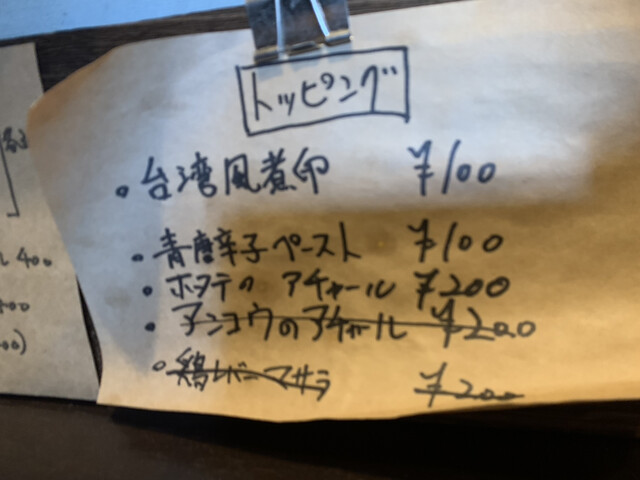 トッピング
。台湾風煮卵 ¥100
。青唐辛子ペースト ¥100
。ホタテの アチャール ¥200
。アンコウのアチャール ¥200
。鶏レバーマサラ ¥200
ル 400
00)